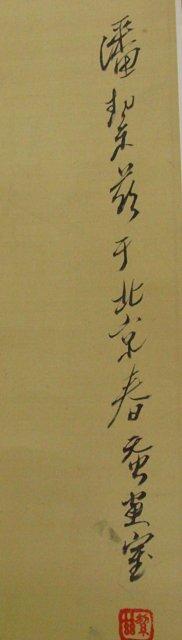 潘絜兹于北京春蚕画室